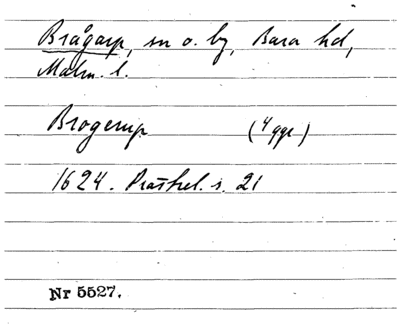 Brågarp, sn o. by, Bara hd,
Malm. l.
Brogerup (4 ggr)
1624. Prästrel. s. 21
Nr 5527.